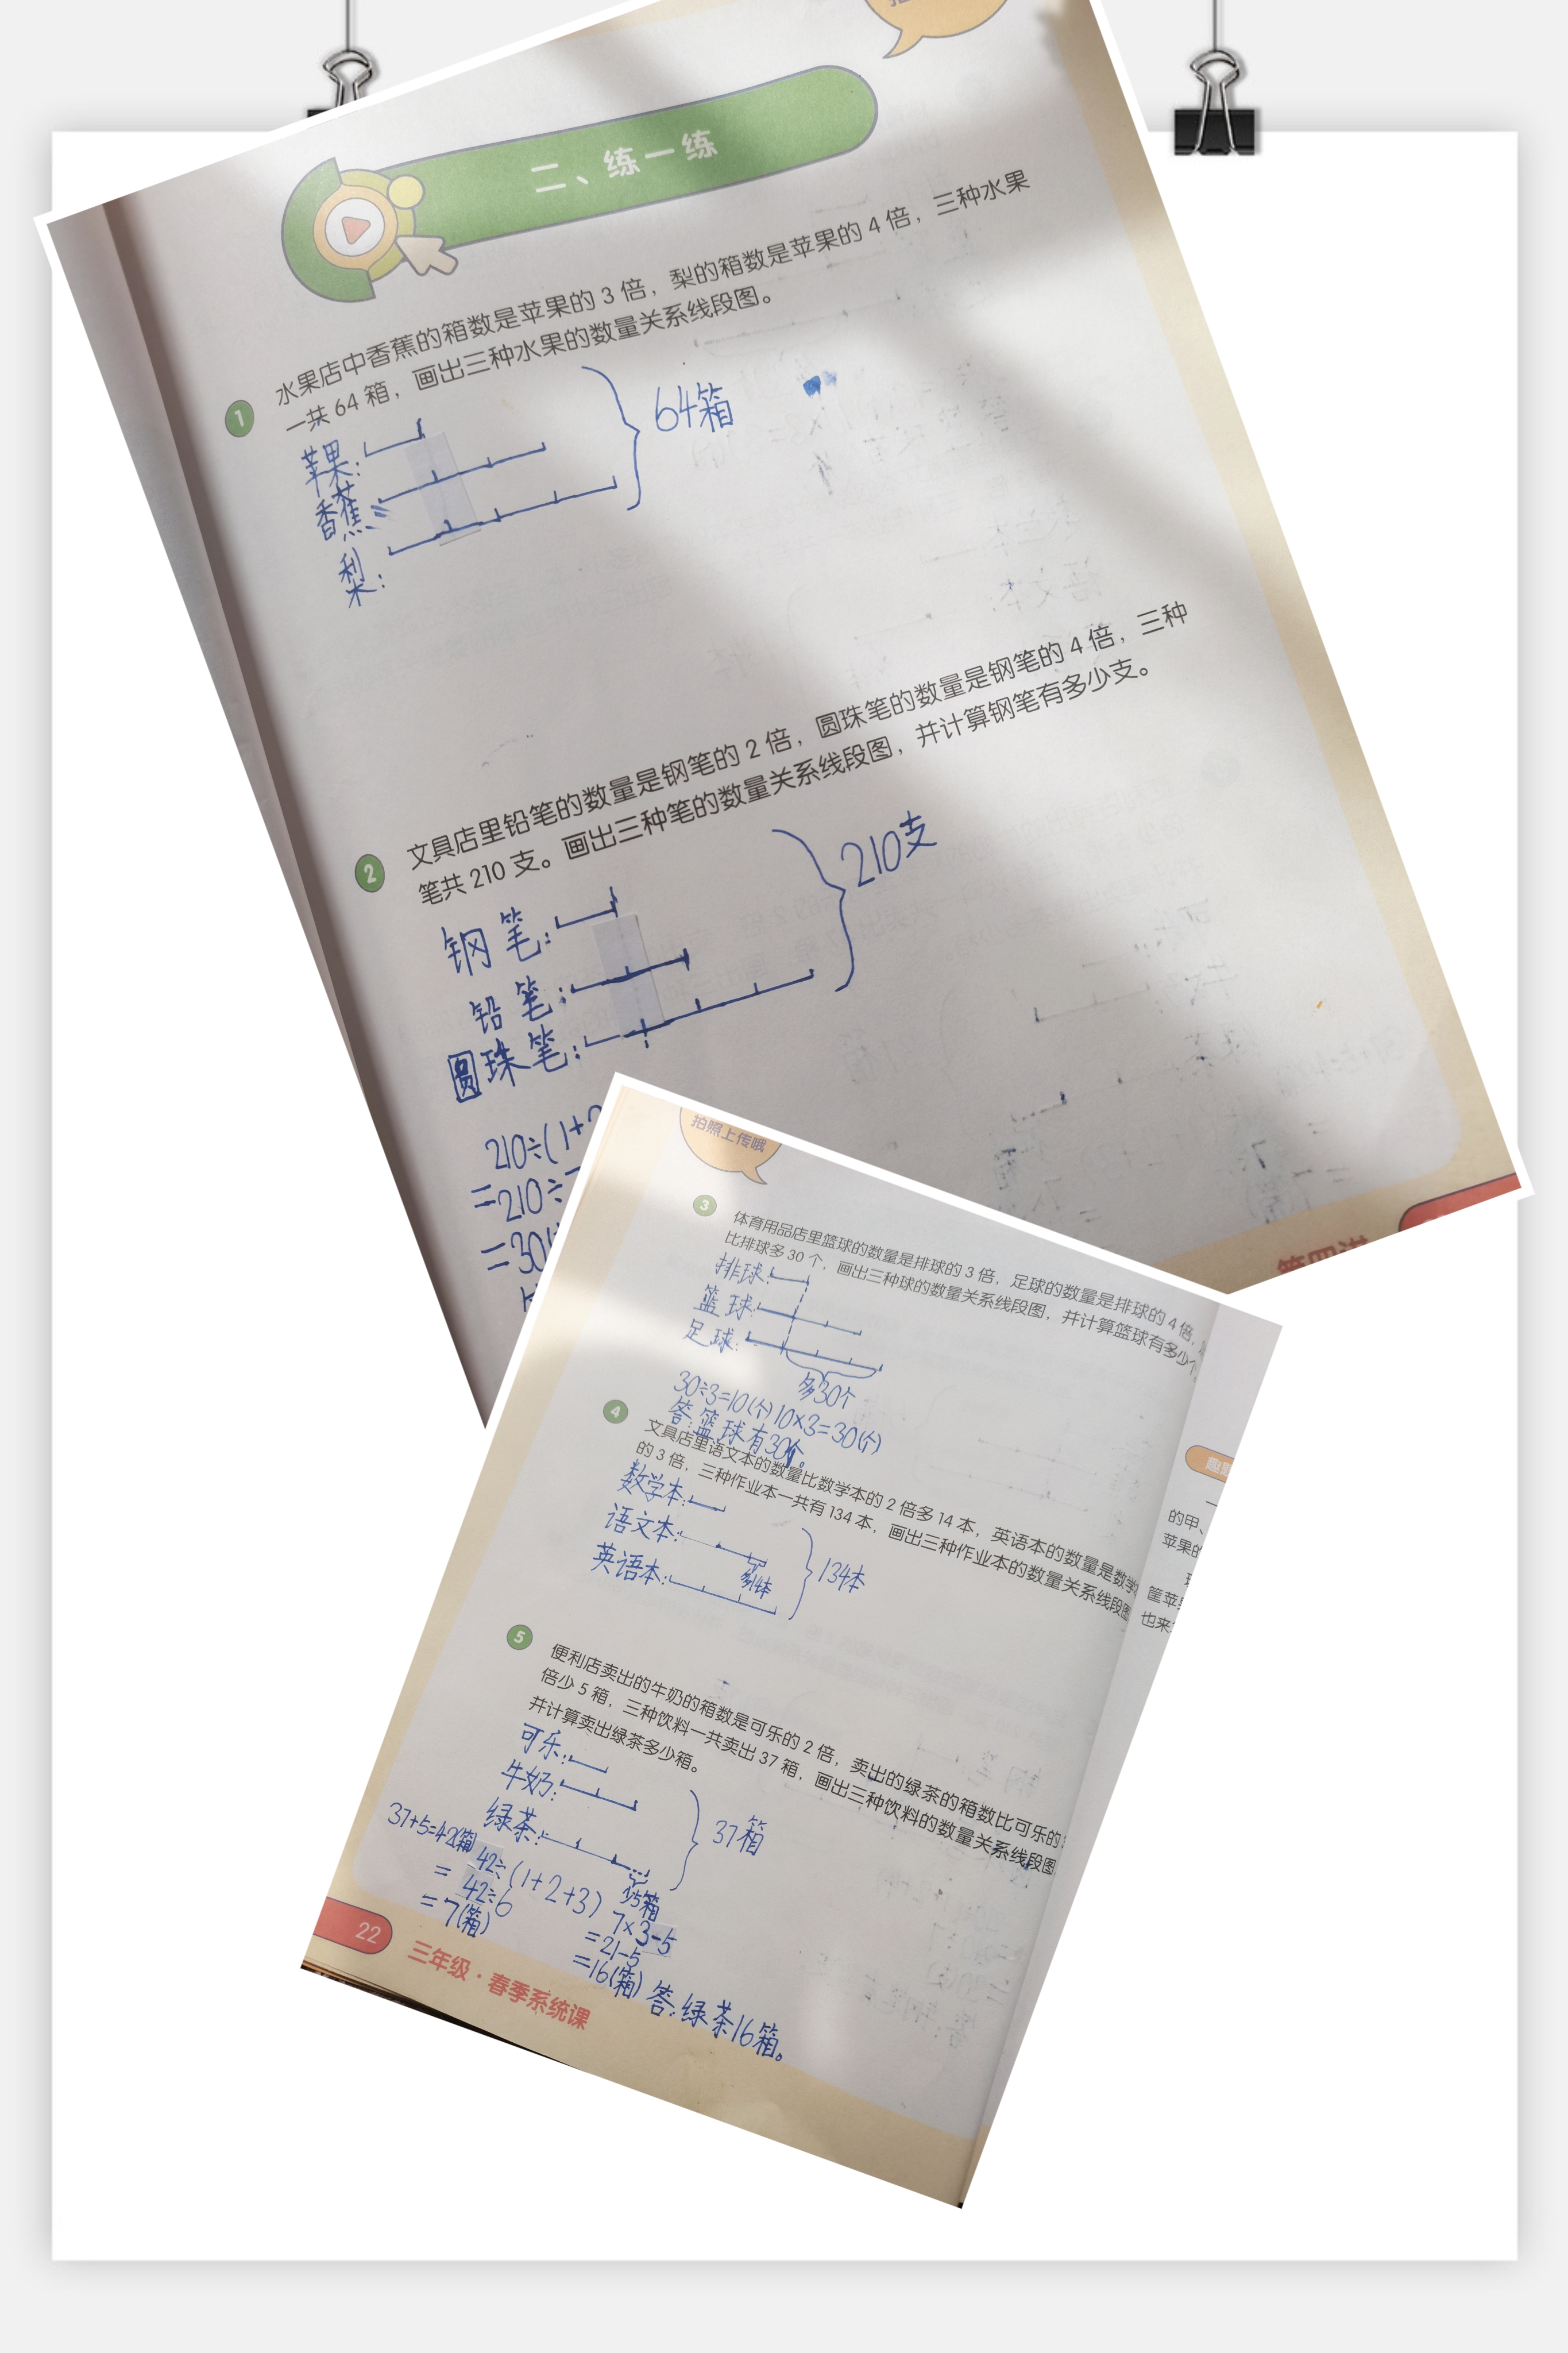 二、练一练
1
水果店中香蕉的箱数是苹果的 3 倍，梨的箱数是苹果的 4 倍，三种水果
一共 64 箱，画出三种水果的数量关系线段图。
苹果:
香蕉:
梨:
64箱
2
文具店里铅笔的数量是钢笔的 2 倍，圆珠笔的数量是钢笔的 4 倍，三种
笔共 210 支。画出三种笔的数量关系线段图，并计算钢笔有多少支。
钢笔:
铅笔:
圆珠笔:
210支
210÷(1+
=210÷
=30
拍照上传哦
3
体育用品店里篮球的数量是排球的 3 倍，足球的数量是排球的 4 倍，
比排球多 30 个，画出三种球的数量关系线段图，并计算篮球有多少个
排球:
篮球:
足球:
多30个
30÷3=10(个) 10×3=30(个)
答:篮球有30个。
4
文具店里语文本的数量比数学本的 2 倍多 14 本，英语本的数量是数学
的 3 倍，三种作业本一共有 134 本，画出三种作业本的数量关系线段图
数学本:
语文本:
多14本
英语本:
134本
5
便利店卖出的牛奶的箱数是可乐的 2 倍，卖出的绿茶的箱数比可乐的
倍少 5 箱，三种饮料一共卖出 37 箱，画出三种饮料的数量关系线段图
并计算卖出绿茶多少箱。
可乐:
牛奶:
绿茶:
少5箱
37箱
37+5=42(箱)
42÷(1+2+3)
=42÷6
=7(箱)
7×3-5
=21-5
=16(箱)
答:绿茶16箱。
22
三年级·春季系统课
的甲、
苹果的
筐苹
也来